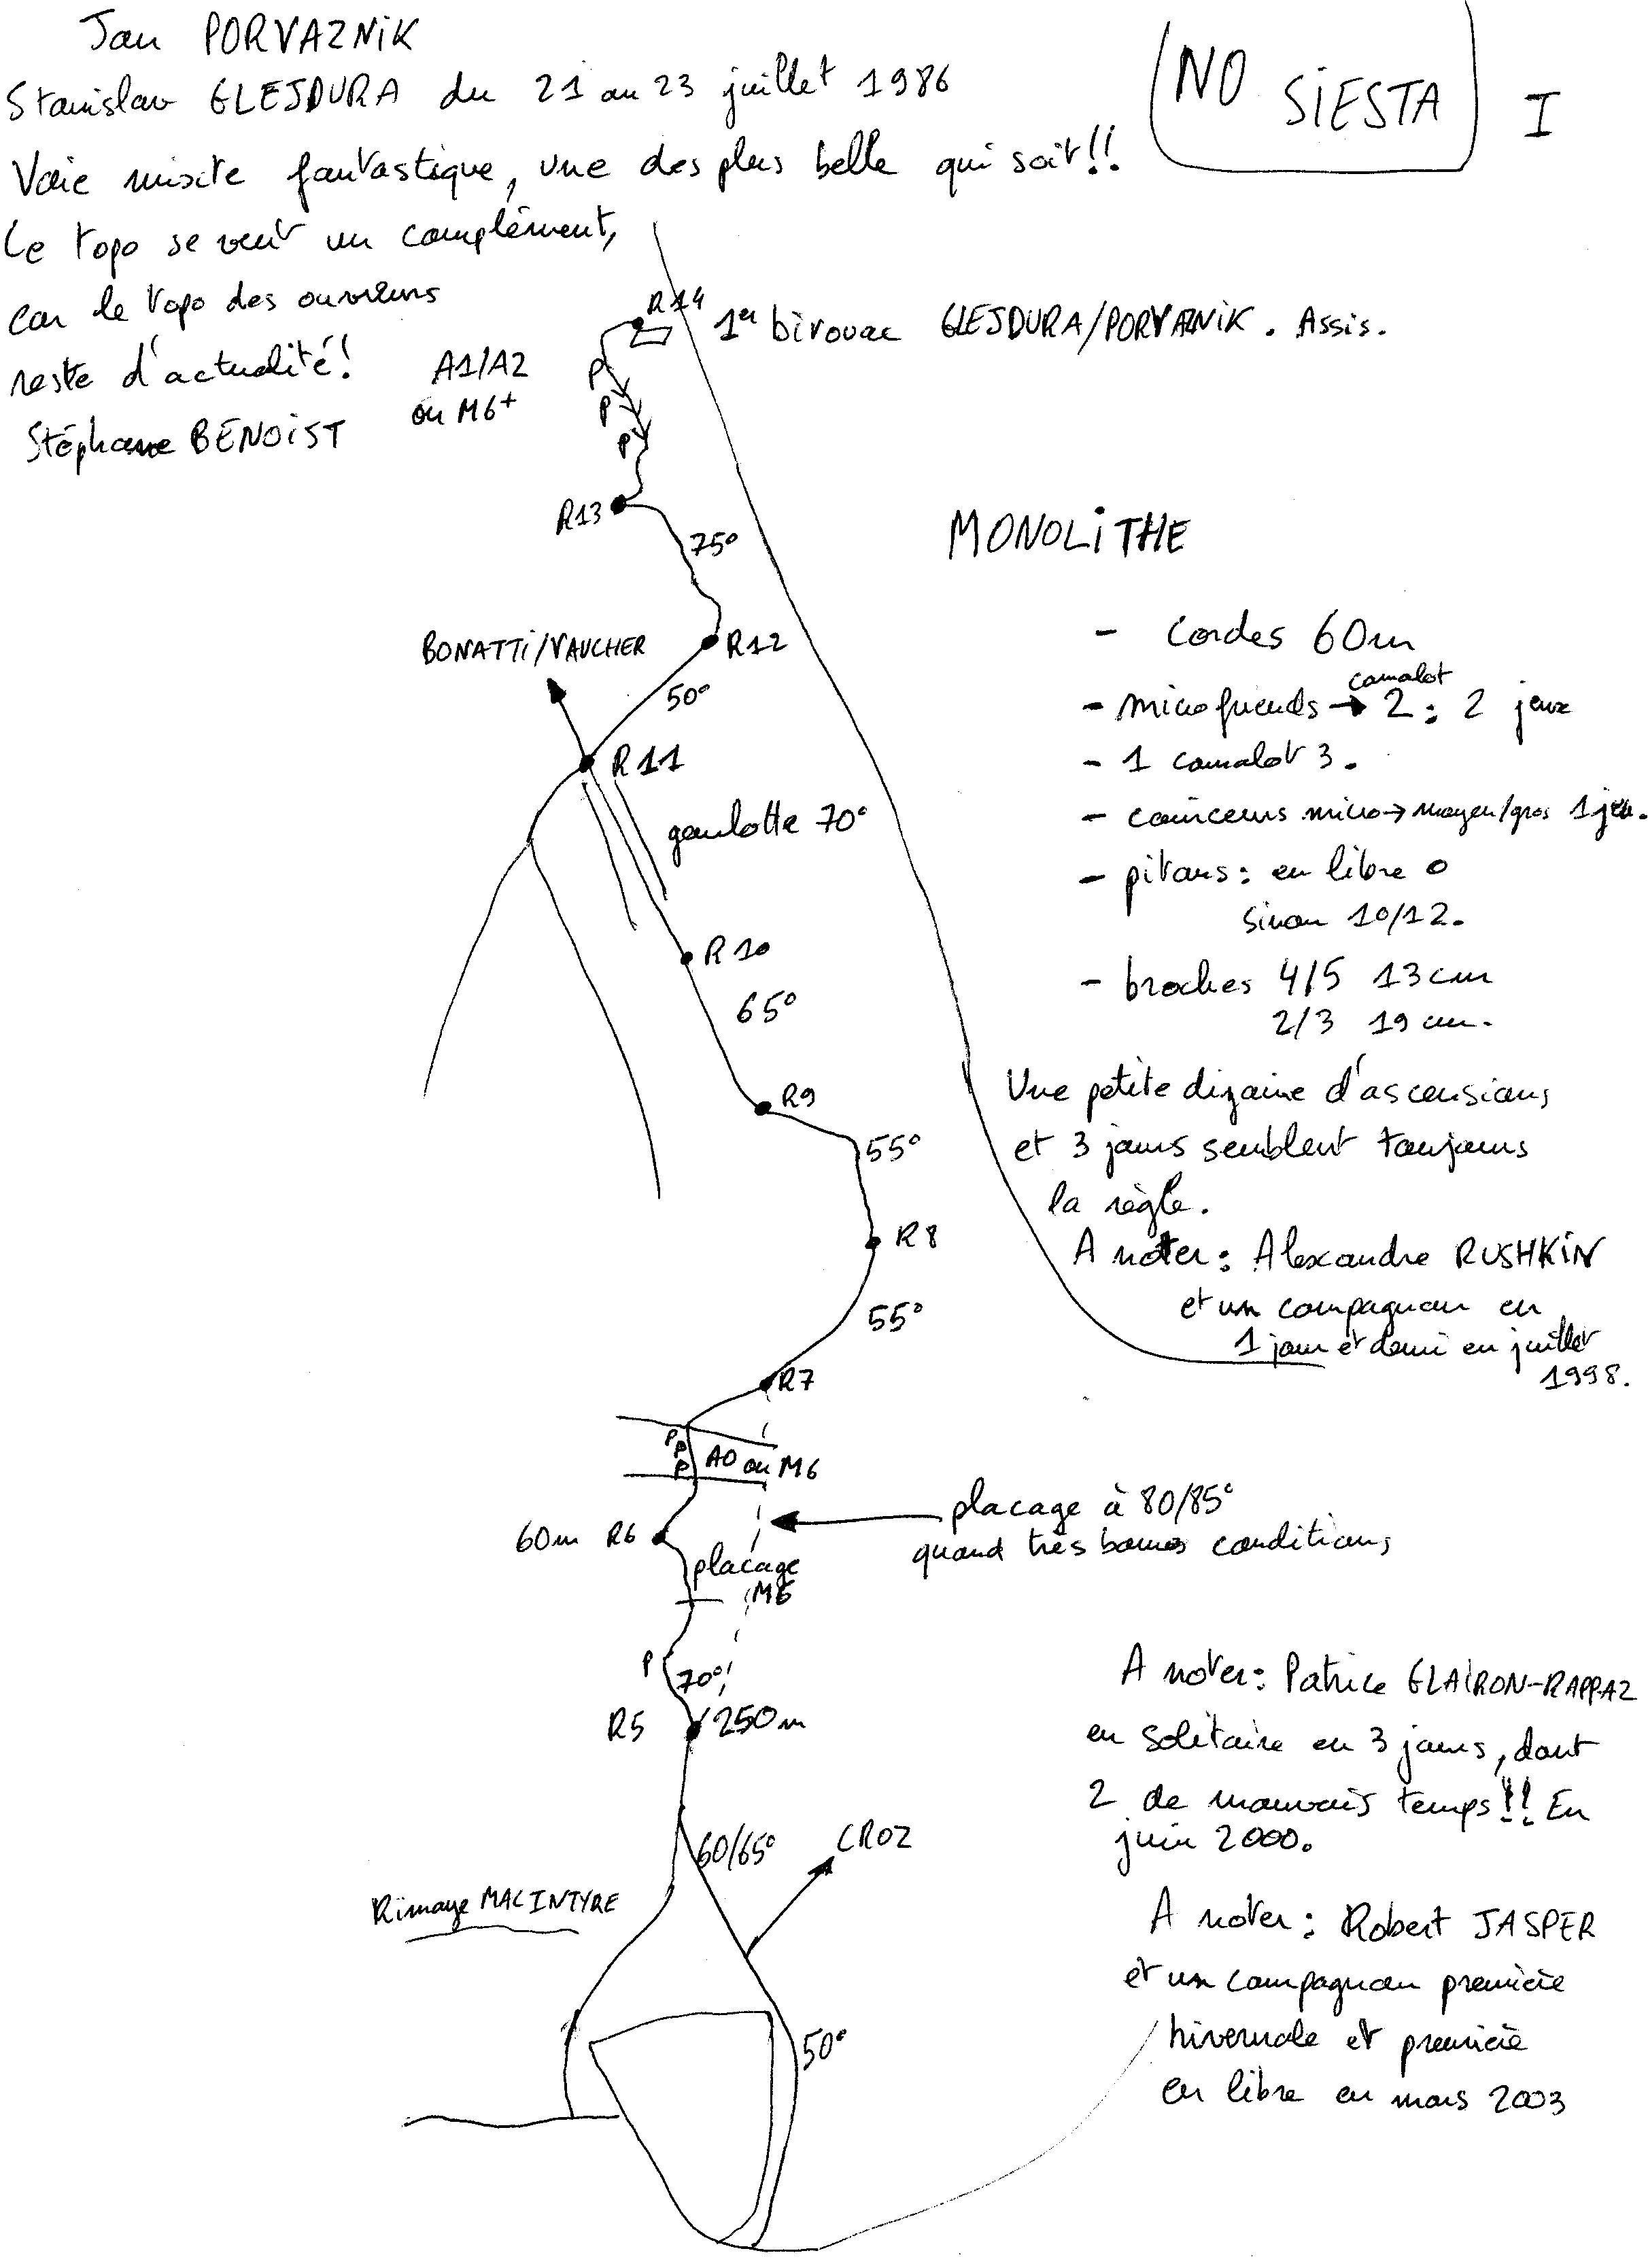 Jan PORVAZNIK
Stanislav GLEJDURA du 21 au 23 juillet 1986
NO SIESTA I
Voie mixte fantastique, une des plus belle qui soit!!
Le topo se veut un complément,
car le topo des ouvreurs
reste d'actualité!
Stéphane BENOIST
R14
1er bivouac GLEJDURA/PORVAZNIK. Assis.
A1/A2
ou M6+
P
P
P
R13
75°
MONOLITHE
BONATTI/VAUCHER
R12
50°
R11
goulotte 70°
R10
65°
R9
55°
R8
55°
R7
- cordes 60m
camalot
- microfriends → 2 : 2 jeux
- 1 camalot 3.
- coinceurs micro → moyen/gros 1 jeu.
- pitons : en libre 0
sinon 10/12.
- broches 4/5 13cm
2/3 19 cm.
Une petite dizaine d'ascensions
et 3 jours semblent toujours
la règle.
A noter : Alexandre RUSHKIN
et un compagnon en
1 jour et demi en juillet
1998.
P
P
P
A0 ou M6
placage à 80/85°
quand très bonnes conditions
60m R6
placage
M6
P
70°
R5
250m
60/65°
CROZ
Rimaye MACINTYRE
50°
A noter : Patrice GLAIRON-RAPPAZ
en solitaire en 3 jours, dont
2 de mauvais temps!! En
juin 2000.
A noter : Robert JASPER
et un compagnon première
hivernale et première
en libre en mars 2003